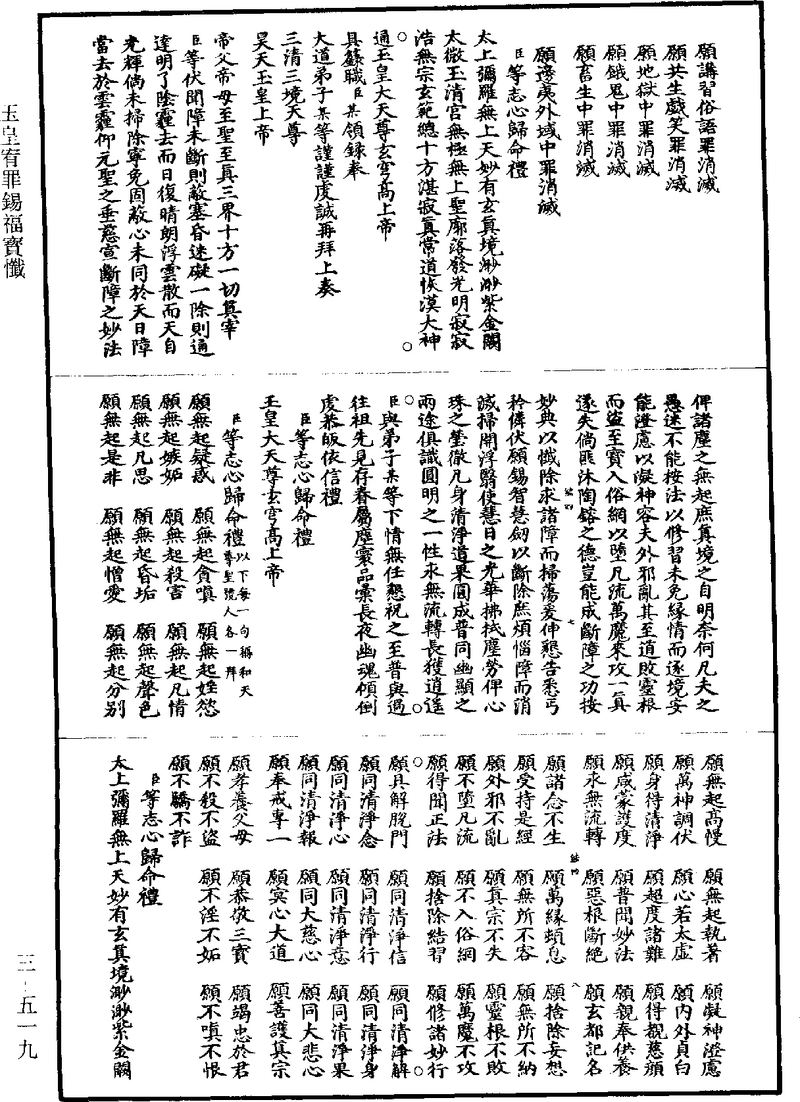 願講習俗語罪消滅
願共生戲笑罪消滅
願地獄中罪消滅
願餓鬼中罪消滅
願畜生中罪消滅
願邊夷外域中罪消滅
臣等志心歸命禮
太上彌羅無上天妙有玄真境渺渺紫金闕
太微玉清宮無極無上聖廓落發光明寂寂
浩無宗玄範總十方湛寂真常道恢漠大神
通玉皇大天尊玄穹高上帝
具籙職臣某領錄奉
大道弟子某等謹謹虔誠再拜上奏
三清三境天尊
昊天玉皇上帝
帝父帝母至聖至真三界十方一切真宰
臣等伏聞障未斷則蔽塞昏迷礙一除則通
達明了陰霾去而日復晴朗浮雲散而天自
光輝倘未掃除寧免固蔽心未同於天日障
當去於雲霾仰元聖之垂慈宣斷障之妙法
俾諸塵之無起庶真境之自明奈何凡夫之
愚迷不能按法以修習未免緣情而逐境安
能澄慮以凝神容夫外邪亂其至道敗靈根
而盜至寶入俗網以墮凡流萬魔來攻一真
遂失倘匪沐陶鎔之德豈能成斷障之功按
妙典以懺除求諸障而掃蕩爰伸懇告悉丐
矜憐伏願錫智慧劒以斷除庶煩惱障而消
滅掃開浮翳使慧日之光華拂拭塵勞俾心
珠之瑩徹凡身清淨道果圓成普同幽顯之
兩途俱識圓明之一性永無流轉長獲逍遙
臣與弟子某等下情無任懇祝之至普與過
往祖先見存眷屬塵寰品彙長夜幽魂傾倒
虔恭皈依信禮
臣等志心歸命禮
玉皇大天尊玄穹高上帝
臣等志心歸命禮以下每一句稱和天尊聖號人各一拜
願無起疑惑 願無起貪嗔 願無起婬慾
願無起嫉妬 願無起殺害 願無起凡情
願無起凡思 願無起昏垢 願無起聲色
願無起是非 願無起憎愛 願無起分别
願無起高慢 願無起執著 願凝神澄慮
願萬神調伏 願心若太虛 願內外貞白
願身得清淨 願超度諸難 願得覩慈顏
願咸蒙護度 願普聞妙法 願親奉供養
願永無流轉 願惡根斷絕 願玄都記名
願諸念不生 願萬緣頓息 願捨除妄想
願受持是經 願無所不容 願無所不納
願外邪不亂 願真宗不失 願靈根不敗
願不墮凡流 願不入俗網 願萬魔不攻
願得聞正法 願捨除結習 願修諸妙行
願具解脫門 願同清淨信 願同清淨解
願同清淨念 願同清淨行 願同清淨身
願同清淨心 願同清淨意 願同清淨果
願同清淨報 願同大慈心 願同大悲心
願奉戒專一 願冥心大道 願善護真宗
願孝養父母 願恭敬三寶 願竭忠於君
願不殺不盜 願不淫不妬 願不嗔不恨
願不驕不詐
臣等志心歸命禮
太上彌羅無上天妙有玄真境渺渺紫金闕
玉皇宥罪錫福寶懺
三-五一九